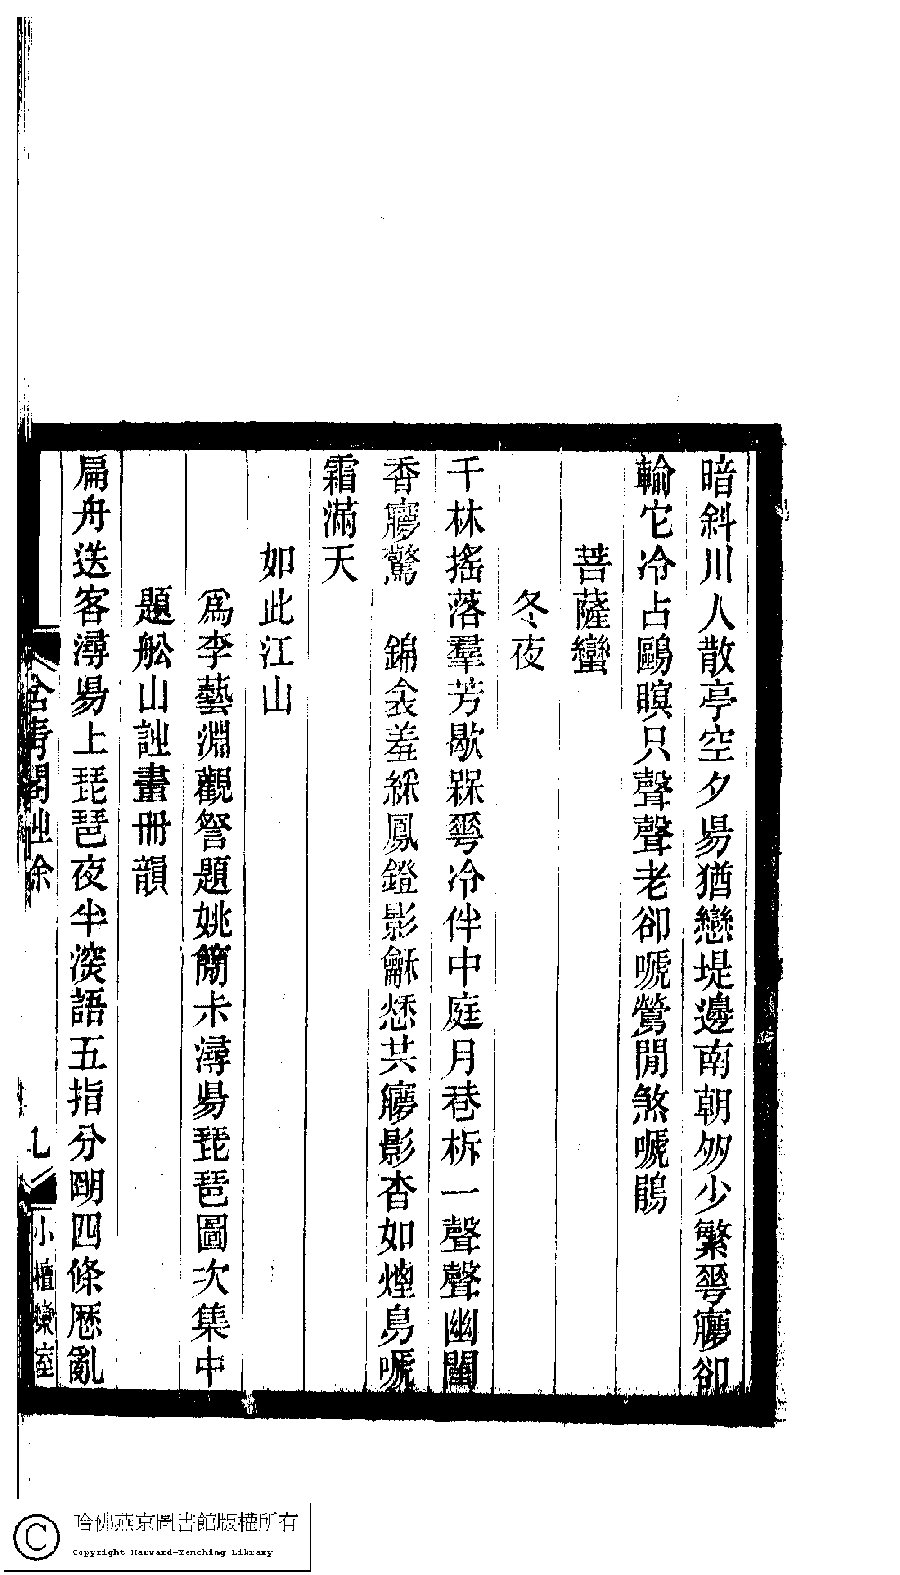 暗斜川人散亭空夕昜猶戀堤邊南朝㚌少繁䔢㝱卻
輸它冷占鷗瞑只聲聲老卻嗁鶯閒煞嗁鵑
菩薩蠻
冬夜
千林搖落羣芳歇槑䔢冷伴中庭月巷柝一聲聲幽閨
香㝱驚　錦衾羞綵鳳鐙影龢愁共㝱影杳如煙烏嗁
霜滿天
如此江山
爲李藝淵觀詧題姚𥳑未潯昜琵琶圖次集中
題舩山䛐畫冊韻
扁舟送客潯昜上琵琶夜半深語五指分朙四條歷亂
含青閣䛐餘
九
小檀欒室
哈佛燕京圖書館版權所有
Copyright Harvard-Yenching Library